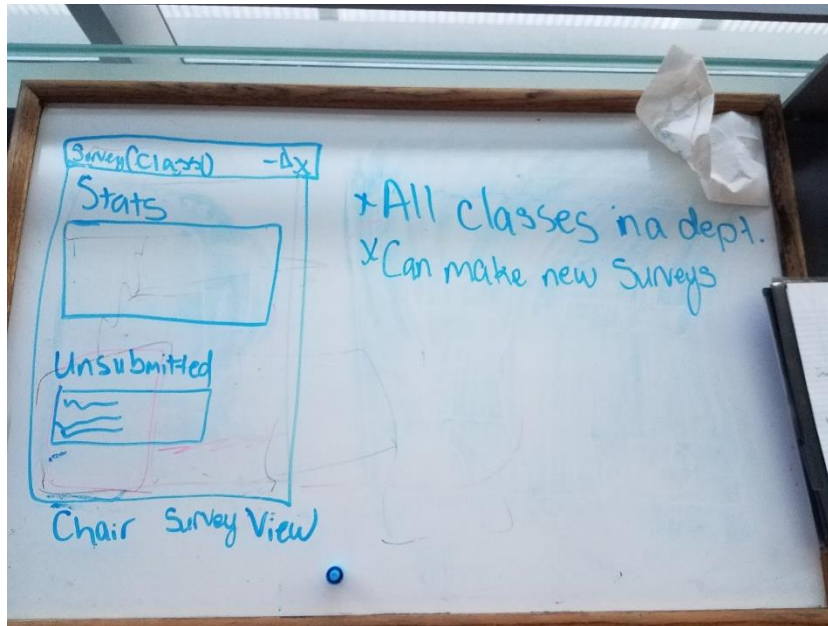 Survey(Class) -Δx
Stats
Unsubmitted
Chair Survey View
*All classes in a dept.
*Can make new Surveys